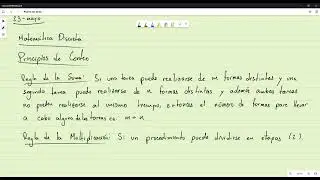 23-mayo
Matemática Discreta
Principios de Conteo
Regla de la Suma: Si una tarea puede realizarse de m formas distintas y una
segunda tarea puede realizarse de n formas distintas y además ambas tareas
no pueden realizarse al mismo tiempo, entonces el número de formas para llevar
a cabo alguna de las tareas es m + n
Regla de la Multiplicación: Si un procedimiento puede dividirse en etapas (2).